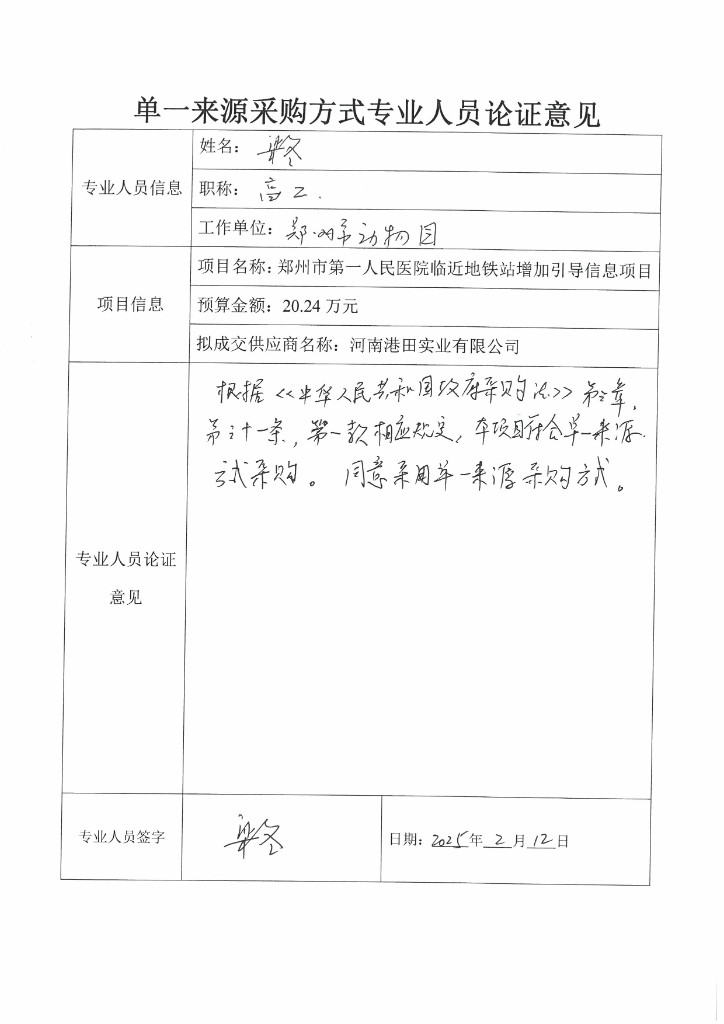 单一来源采购方式专业人员论证意见
专业人员信息
姓名:
职称: 高工.
工作单位: 郑州市动物园
项目信息
项目名称: 郑州市第一人民医院临近地铁站增加引导信息项目
预算金额: 20.24 万元
拟成交供应商名称: 河南港田实业有限公司
专业人员论证
意见
根据<<中华人民共和国政府采购法>>第三章,
第三十一条, 第一款相应规定, 本项目符合单一来源
方式采购。 同意采用单一来源采购方式。
专业人员签字
日期: 2025年 2 月 12 日